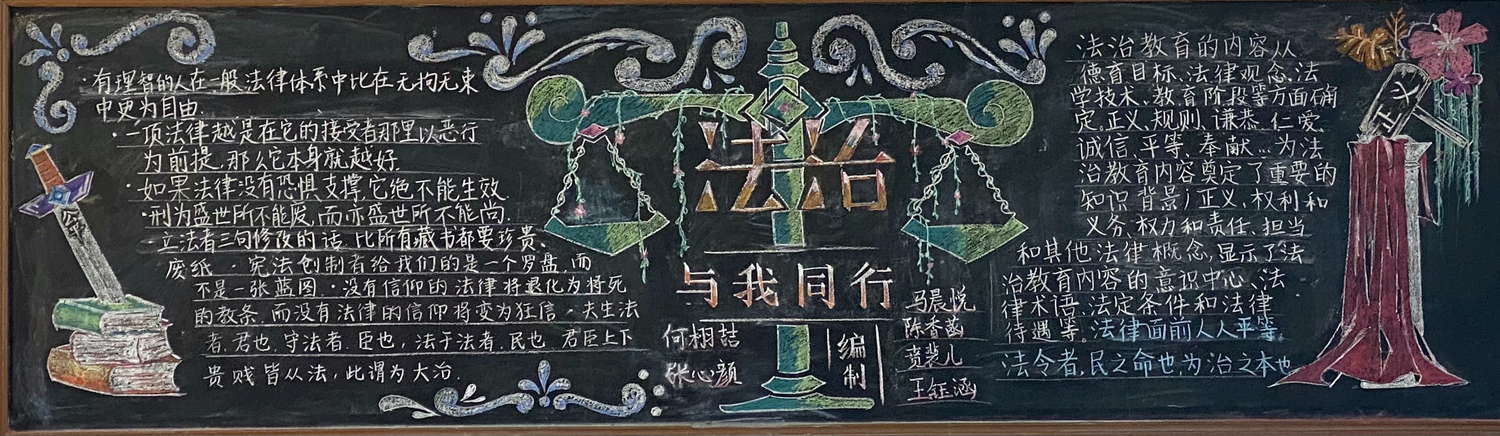 ·有理智的人在一般法律体系中比在无拘无束
中更为自由.
·一项法律越是在它的接受者那里以恶行
为前提,那么它本身就越好.
·如果法律没有恐惧支撑,它绝不能生效
·刑为盛世所不能废,而亦盛世所不能尚.
·立法者三句修改的话,比所有藏书都要珍贵、
废纸.·宪法创制者给我们的是一个罗盘,而
不是一张蓝图.·没有信仰的法律将退化为将死
的教条,而没有法律的信仰将变为狂信.·夫生法
者,君也,守法者,臣也,法于法者,民也,君臣上下
贵贱皆从法,此谓为大治.
法治
与我同行
何栩喆
张心颜
编制
马晨悦
陈香菡
贲裴儿
王钰涵
法治教育的内容从
德育目标、法律观念、法
学技术、教育阶段等方面确
定。正义、规则、谦恭、仁爱、
诚信、平等、奉献...为法
治教育内容奠定了重要的
知识背景;正义、权利和
义务、权力和责任、担当
和其他法律概念,显示了法
治教育内容的意识中心、法
律术语、法定条件和法律
待遇等。法律面前人人平等。
法令者,民之命也,为治之本也
正义